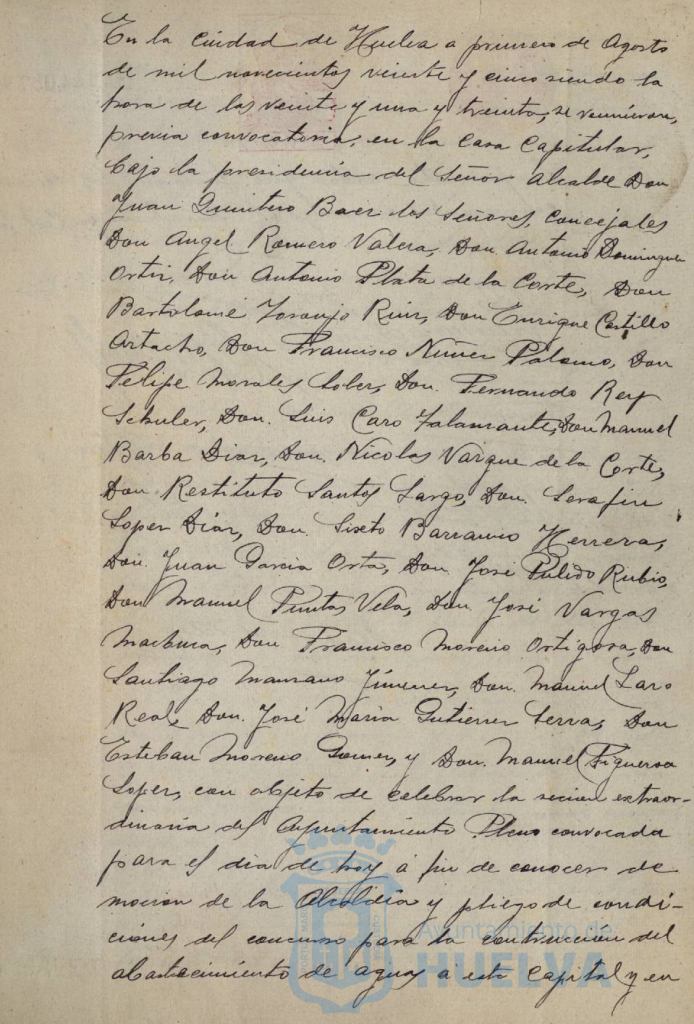 En la Ciudad de Huelva a primero de Agosto
de mil novecientos veinte y cinco siendo la
hora de las veinte y una y treinta, se reunieron,
previa convocatoria, en la Casa Capitular,
bajo la presidencia del Señor Alcalde Don
Juan Quintero Baez los Señores, Concejales
Don Angel Romero Valera, Don Antonio Dominguez
Ortiz, Don Antonio Plata de la Corte, Don
Bartolomé Naranjo Ruiz, Don Enrique Castillo
Artacho, Don Francisco Núñez Palomo, Don
Felipe Morales Lober, Don. Fernando Rey
Schuler, Don. Luis Caro Talamante, Don Manuel
Barba Diaz, Don. Nicolas Vazque de la Corte,
Don Restituto Santos Largo, Don. Serafin
Lopez Díaz, Don. Sixto Barranco Herrera,
Don. Juan Garcia Orta, Don. José Pulido Rubio,
Don Manuel Puntas Vela, Don. José Vargas
Machuca, Don Francisco Moreno Ortigosa, Don
Santiago Manzano Jímenez, Don. Manuel Caro
Real, Don. José Maria Gutierrez Serra, Don
Esteban Moreno Gomez, y Don. Manuel Figueroa
Lopez, con objeto de celebrar la secion extraor-
dinaria del Ayuntamiento Pleno convocada
para el dia de hoy á fin de conocer de
mocion de la Alcaldía y pliego de condi-
ciones del concurso para la contruccion del
abastecimiento de aguas a esta Capital y en
Ayuntamiento de
HUELVA